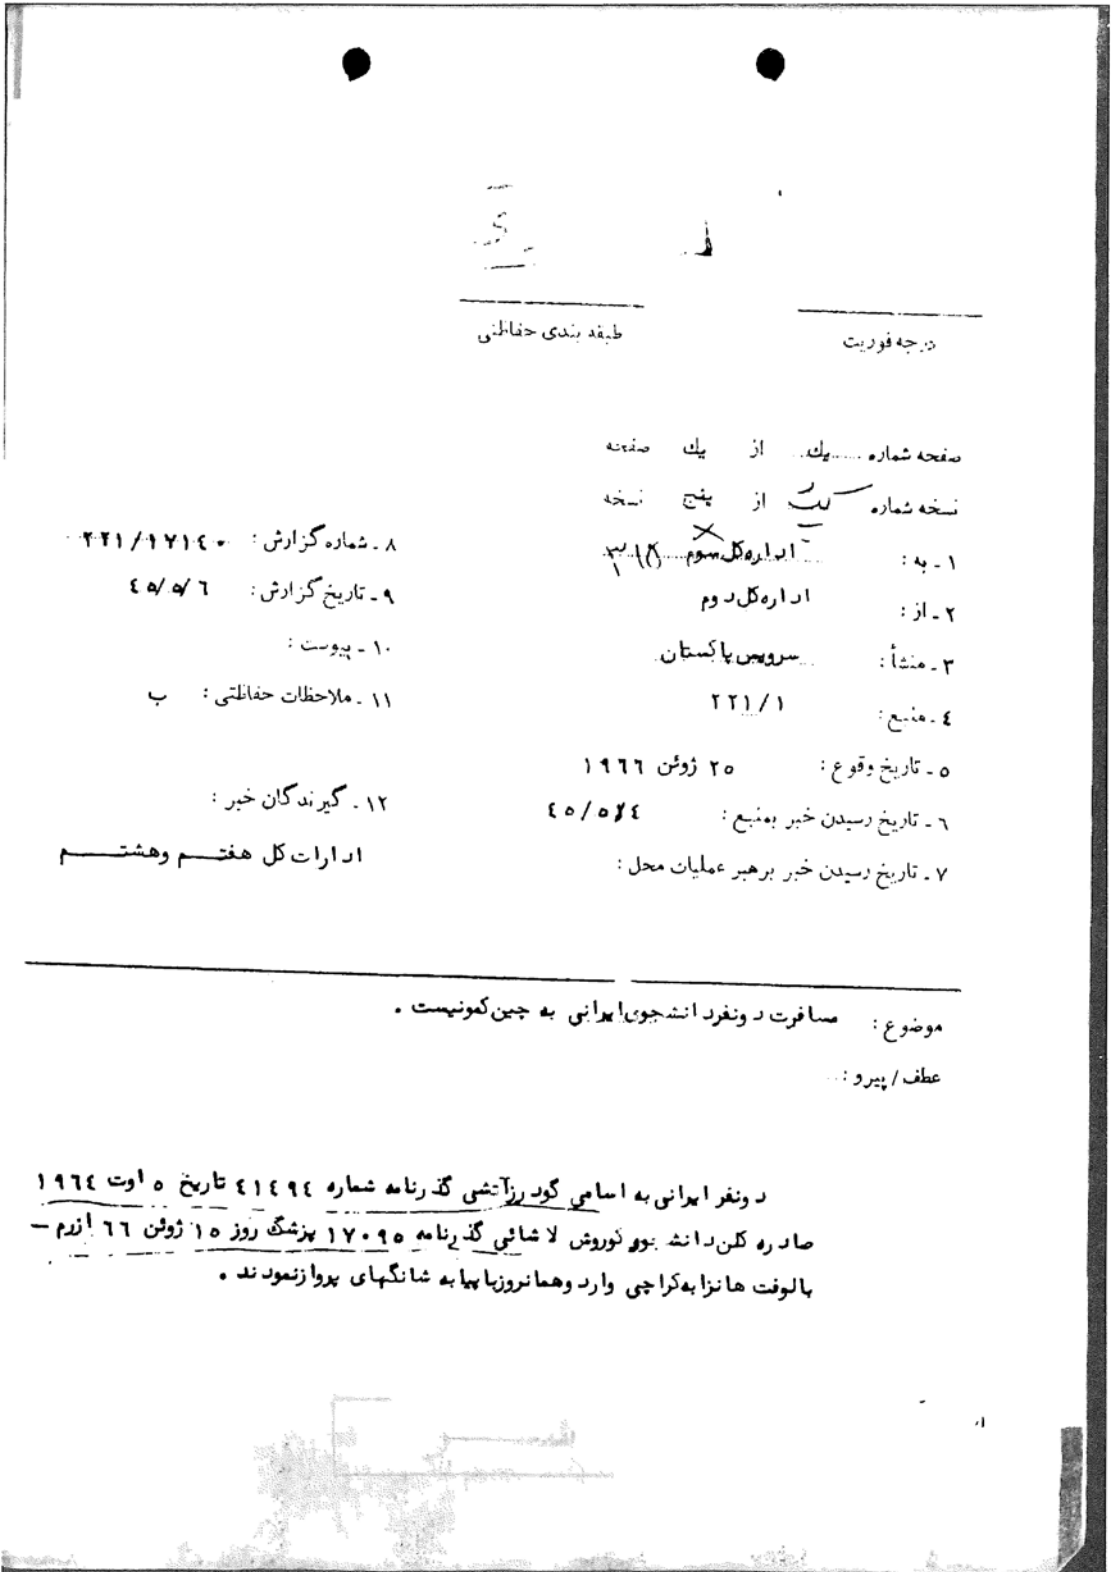 طبقه بندی حفاظتی
درجه فوریت
صفحه شماره یك از یك صفحه
نسخه شماره یک از پنج نسخه
۱ ـ به : اداره کل سوم
۲ ـ از : اداره کل دوم
۳ ـ منشأ : سرویس پاکستان
٤ ـ منبع : ۲۲۱/۱
٥ ـ تاریخ وقوع : ۲۵ ژوئن ۱۹٦٦
٦ ـ تاریخ رسیدن خبر بمنبع : ٤٥/٥/٤
۷ ـ تاریخ رسیدن خبر برهبر عملیات محل :
۸ ـ شماره گزارش : ۲۲۱/۱۷۱٤۰
۹ ـ تاریخ گزارش : ٤٥/٥/٦
۱۰ ـ پیوست :
۱۱ ـ ملاحظات حفاظتی : ب
۱۲ ـ گیرندگان خبر :
ادارات کل هفتم وهشتم
موضوع : مسافرت دونفر دانشجوی ایرانی به چین کمونیست .
عطف / پیرو :
دونفر ایرانی به اسامی گودرز آتشی گذرنامه شماره ٤۱٤۹٤ تاریخ ٥ اوت ۱۹٦٤
صادره کلن دانشجو و کوروش لاشائی گذرنامه ۱۷۰۹۵ پزشگ روز ۱۵ ژوئن ٦٦ ازرم –
بالوفت هانزا به کراچی وارد وهمانروز با پیا به شانگهای پرواز نمودند .